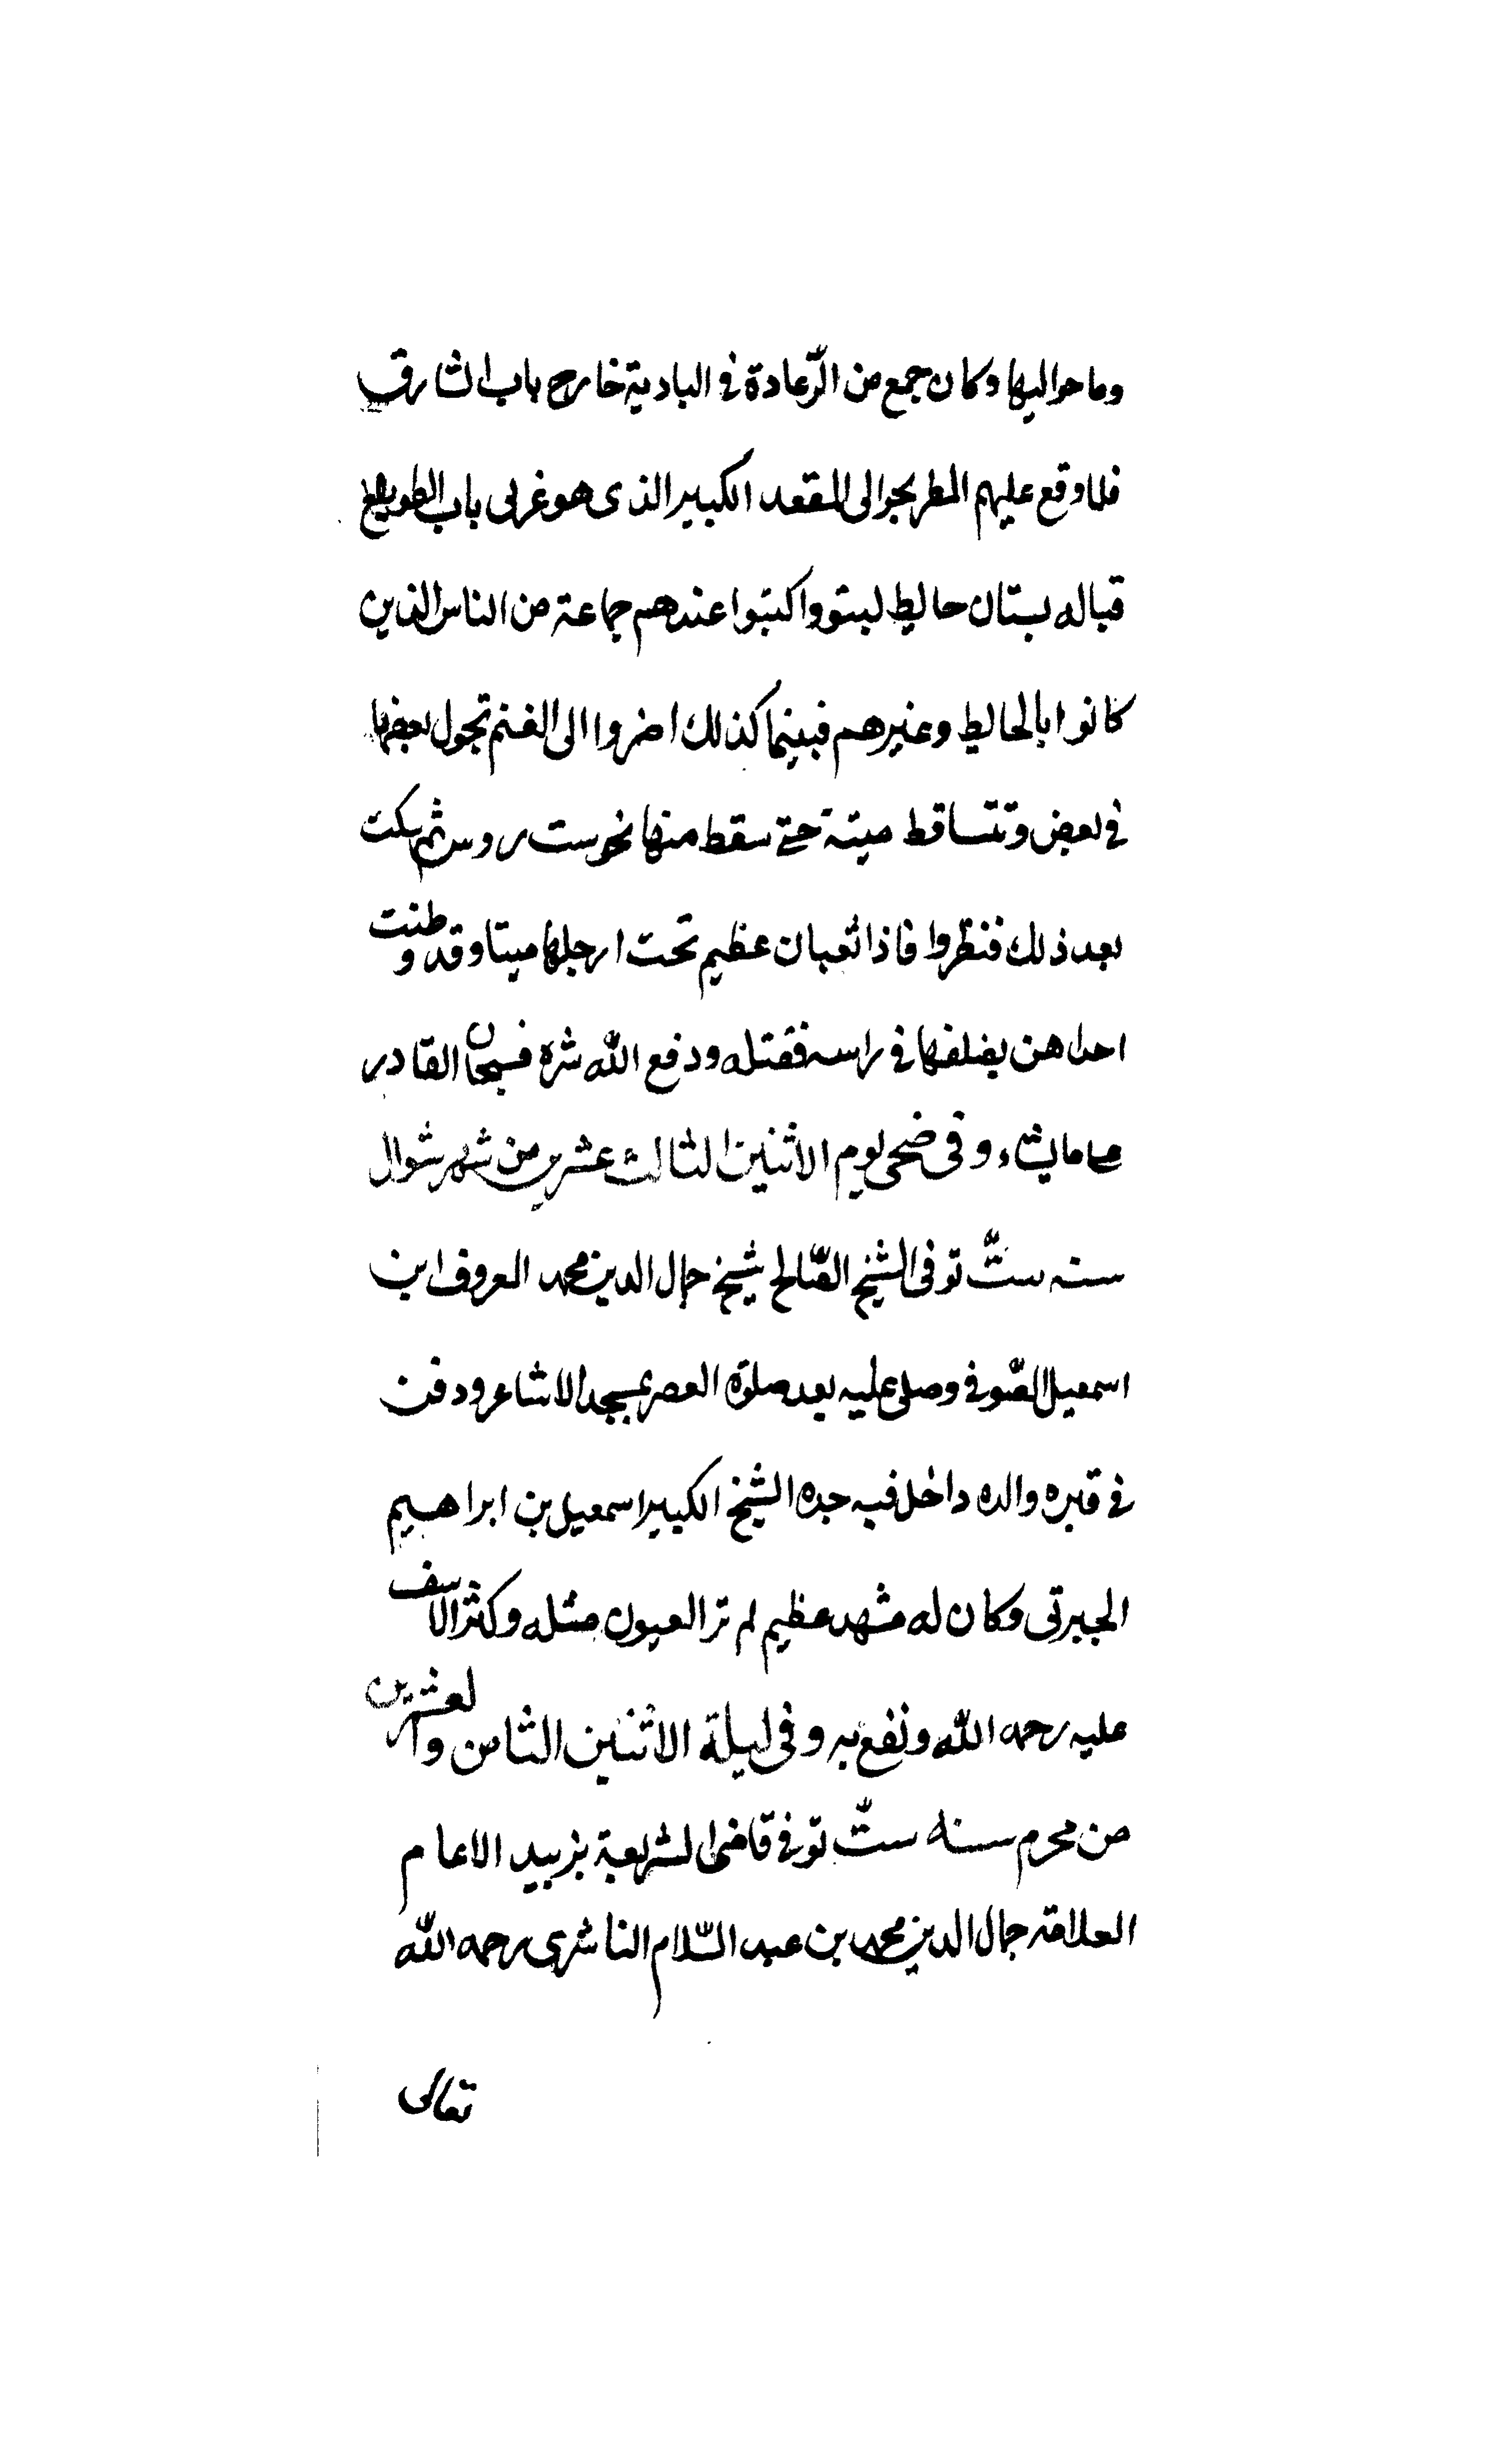 وما حواليها وكان جمع من الرّعادة في البادية خارج باب الشارق
فلما وقع عليهم المطر لجوا الى المقعد الكبير الذى هو غربى باب
قباله بستان حايط لبيق واكتبوا عندهم جماعة من الناس الذين
كانوا بالحايط وغيرهم فبينما كذلك الى الغنم تجول بعضها
في بعض وتتساقط ميتة حتى سقط منها نحو ست روس ثم سكت
بعد ذلك فنظروا فاذا ثعبان عظيم تحت ارجلها ميتا وقد وطئت
احداهن بضلفها في راسه فقتله ودفع الله شره فسبحان القادر
على ما يشاء وفى ضحى يوم الاثنين الثالث عشرين من شهر شوال
سنه ستّ توفى الشيخ الصّالح شيخ جمال الدين محمد المعروف ابن
اسمعيل الصّوفي وصلى عليه بعد صلوة العصر بمسجد الاشاعر ودفن
في قبره والده داخل قبه جده الشيخ الكبير اسمعيل بن ابراهيم
الجبرتى وكان له مشهد عظيم لم تر العيون مثله وكثر الاسف
عليه رحمه الله ونفع به وفى ليلة الاثنين الثامن والعشرين
من محرم سنه ستّ توفي قاضى الشريعة بزبيد الامام
العلامة جمال الدين محمد بن عبد السّلام الناشرى رحمه الله
تعالى